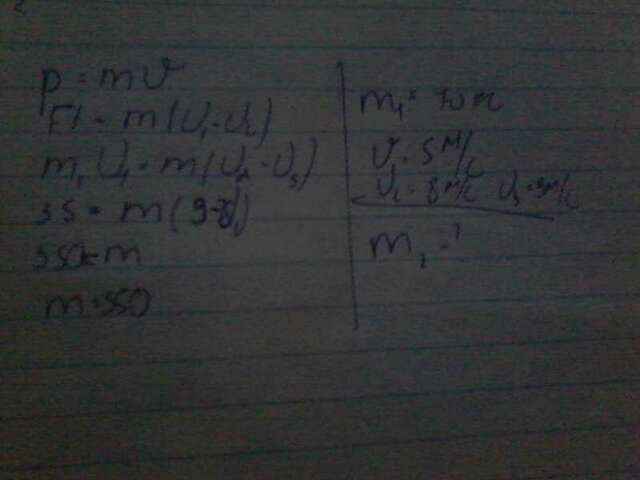 p = mv
Ft = m(U₁-U₂)
m₁ U₁ = m(U₂ - U₃)
35 = m(9-8)
350 = m
m = 350
m₁ =
U = 5 м/с
U₂ = 8 м/с U₃ = 9 м/с
m₂ - ?